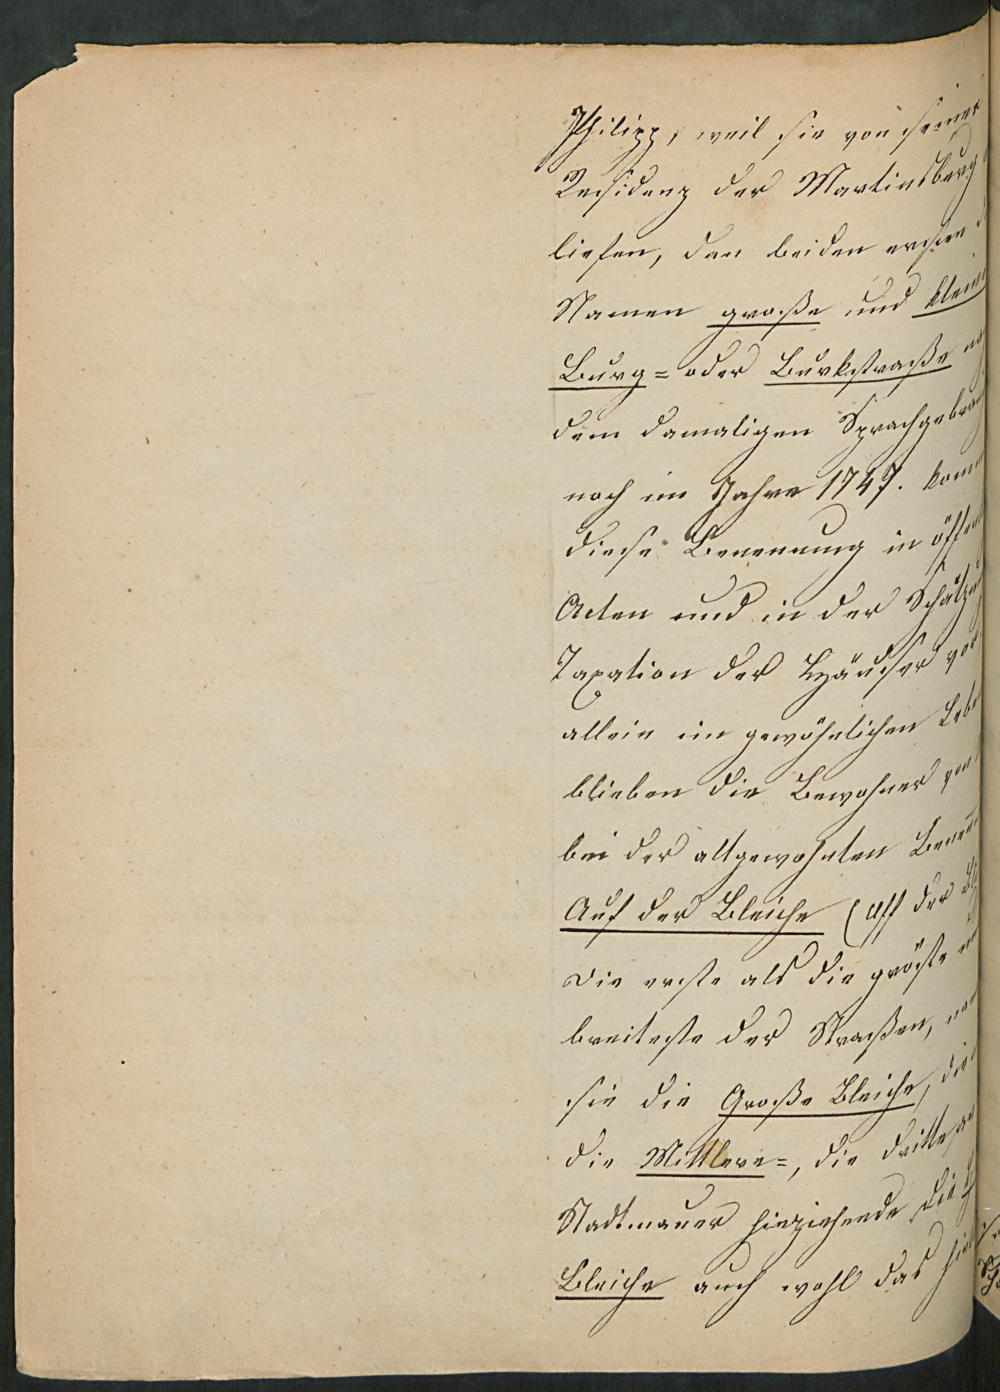 Philipp, weil sie von seiner
Residenz der Martinsburg
liefen, den beiden ersten
Namen große und kleine
Burg= oder Burkstraße
dem damaligen Sprachgebrau
noch im Jahre 1747. kom
diese Benennung in öffen
Acten und in der Schätz
Taxation der Häuser vor
allein im gewöhnlichen Lebe
blieben die Bewohner von
bei der altgewohnten Benen
Auf der Bleiche (Uff der Bl
Die erste als die gröste
breiteste der Straßen,
sie die Große Bleiche, die
die Mittlere=, die dritte
Stadtmauer hinziehende die
Bleiche auch wohl das hin